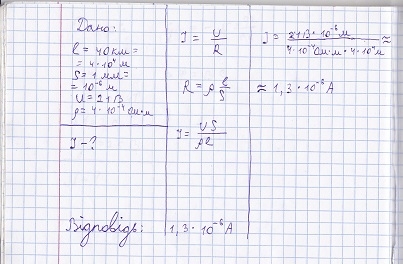 Дано:
l = 40 км =
= 4·10⁴ м
S = 1 мм =
= 10⁻⁶ м
U = 21 В
ρ = 4·10⁻⁴ См·м
I - ?
I = U/R
R = ρ l/S
I = US/ρl
I = 21В·10⁻⁶м / 4·10⁻⁴См·м·4·10⁴м ≈
≈ 1,3·10⁻⁶ А
Відповідь: 1,3·10⁻⁶ А